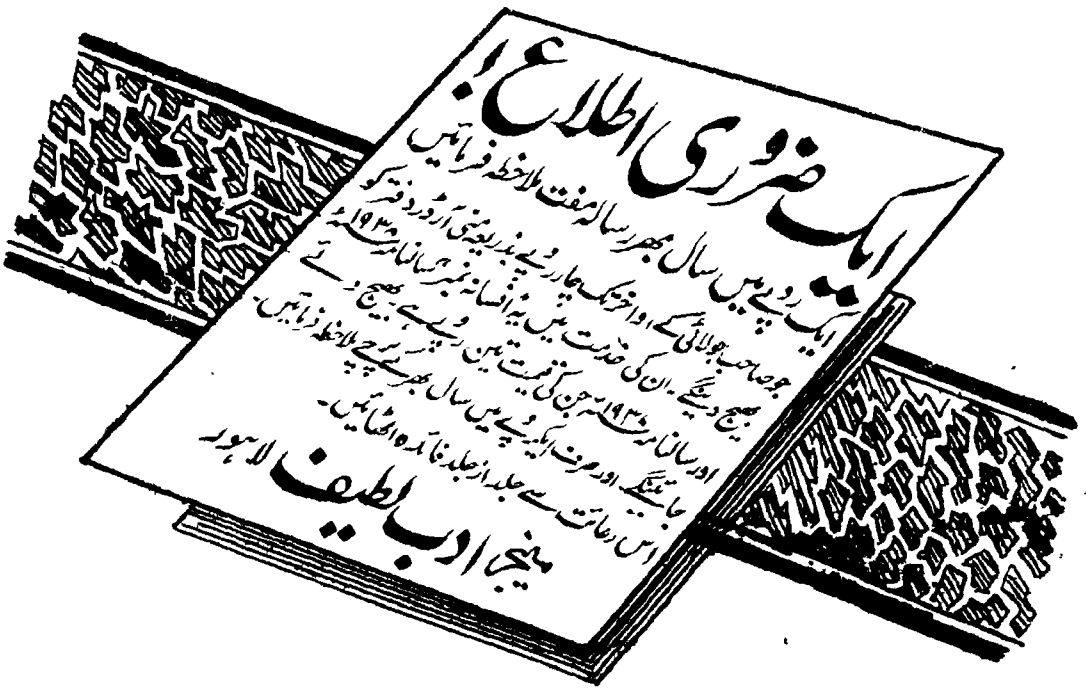 ایک ضروری اطلاع!
ایک روپے میں سال بھر رسالہ مفت ملاحظہ فرمائیں
جو صاحب جولائی کے اواخر تک چار روپے بذریعہ منی آرڈر دفتر کو
بھیج دینگے۔ ان کی خدمت میں یہ افسانہ نمبر، سالنامہ ۱۹۳۸ء
اور سالنامہ ۱۹۳ء جن کی قیمت تین روپے ہے بھیج دئے
جائینگے اور صرف ایک روپے میں سال بھر کے پرچے ملاحظہ فرمائیں۔
اس رعائت سے جلد از جلد فائدہ اٹھائیں۔
منیجر ادب لطیف لاہور